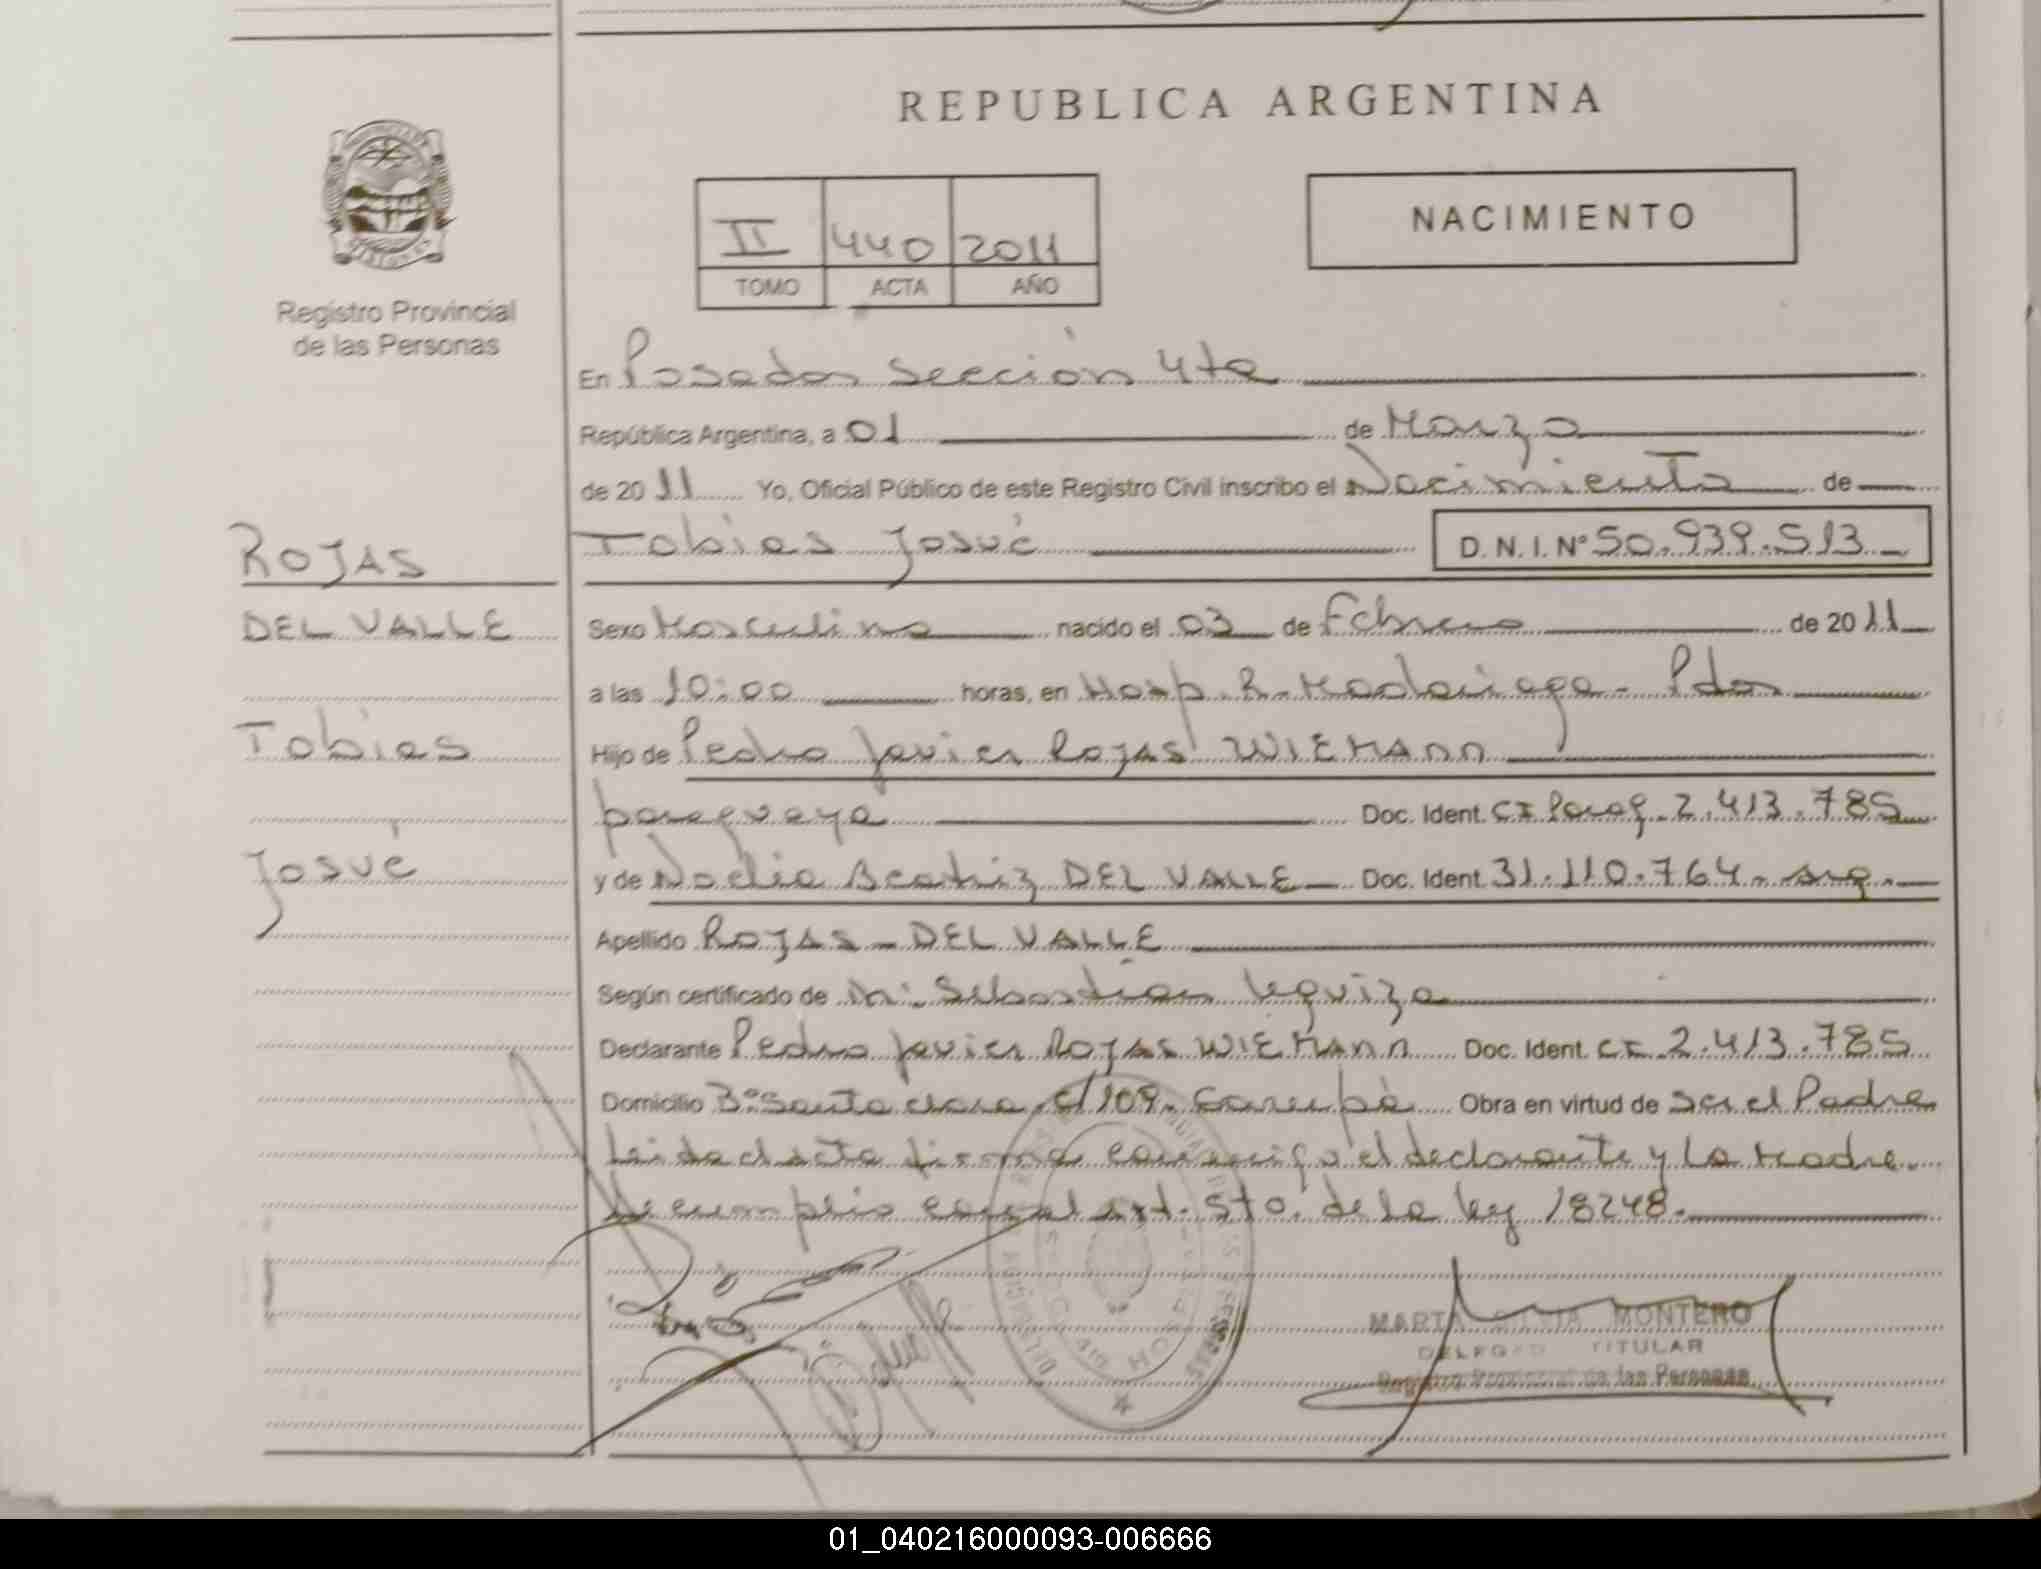 REPUBLICA ARGENTINA
NACIMIENTO
II 440 2011
TOMO ACTA AÑO
Registro Provincial
de las Personas
En Posadas Sección 4ta
República Argentina, a 01 de Marzo
de 2011 Yo, Oficial Público de este Registro Civil inscribo el Nacimiento de
Tobias Josué D.N.I. Nº 50.939.513
ROJAS
DEL VALLE
Tobias
Josué
Sexo Masculino nacido el 03 de Febrero de 2011
a las 10:00 horas, en Hosp. R. Madariaga - Pdas
Hijo de Pedro Javier Rojas WIEMANN
paraguaya Doc. Ident. CI Parag. 2.413.785
y de Noelia Beatriz DEL VALLE Doc. Ident. 31.110.764. arg.
Apellido ROJAS - DEL VALLE
Según certificado de Sebastian
Declarante Pedro Javier ROJAS WIEMANN Doc. Ident. CI. 2.413.785
Domicilio Bº Santa Clara c/109. Garupá Obra en virtud de ser el Padre
Leida el acta firma conmigo el declarante y la Madre.
Se cumplió con el art. 5to. de la ley 18248.
MARTA SILVIA MONTERO
DELEGADA TITULAR
Registro Provincial de las Personas
01_040216000093-006666